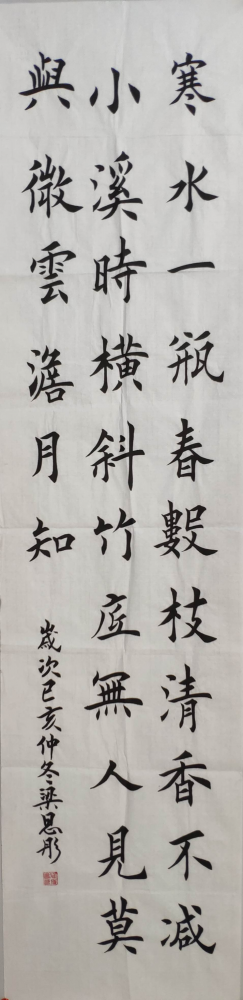 寒水一瓶春數枝清香不減
小溪時橫斜竹底無人見莫
與微雲澹月知
歲次己亥仲冬梁思彤